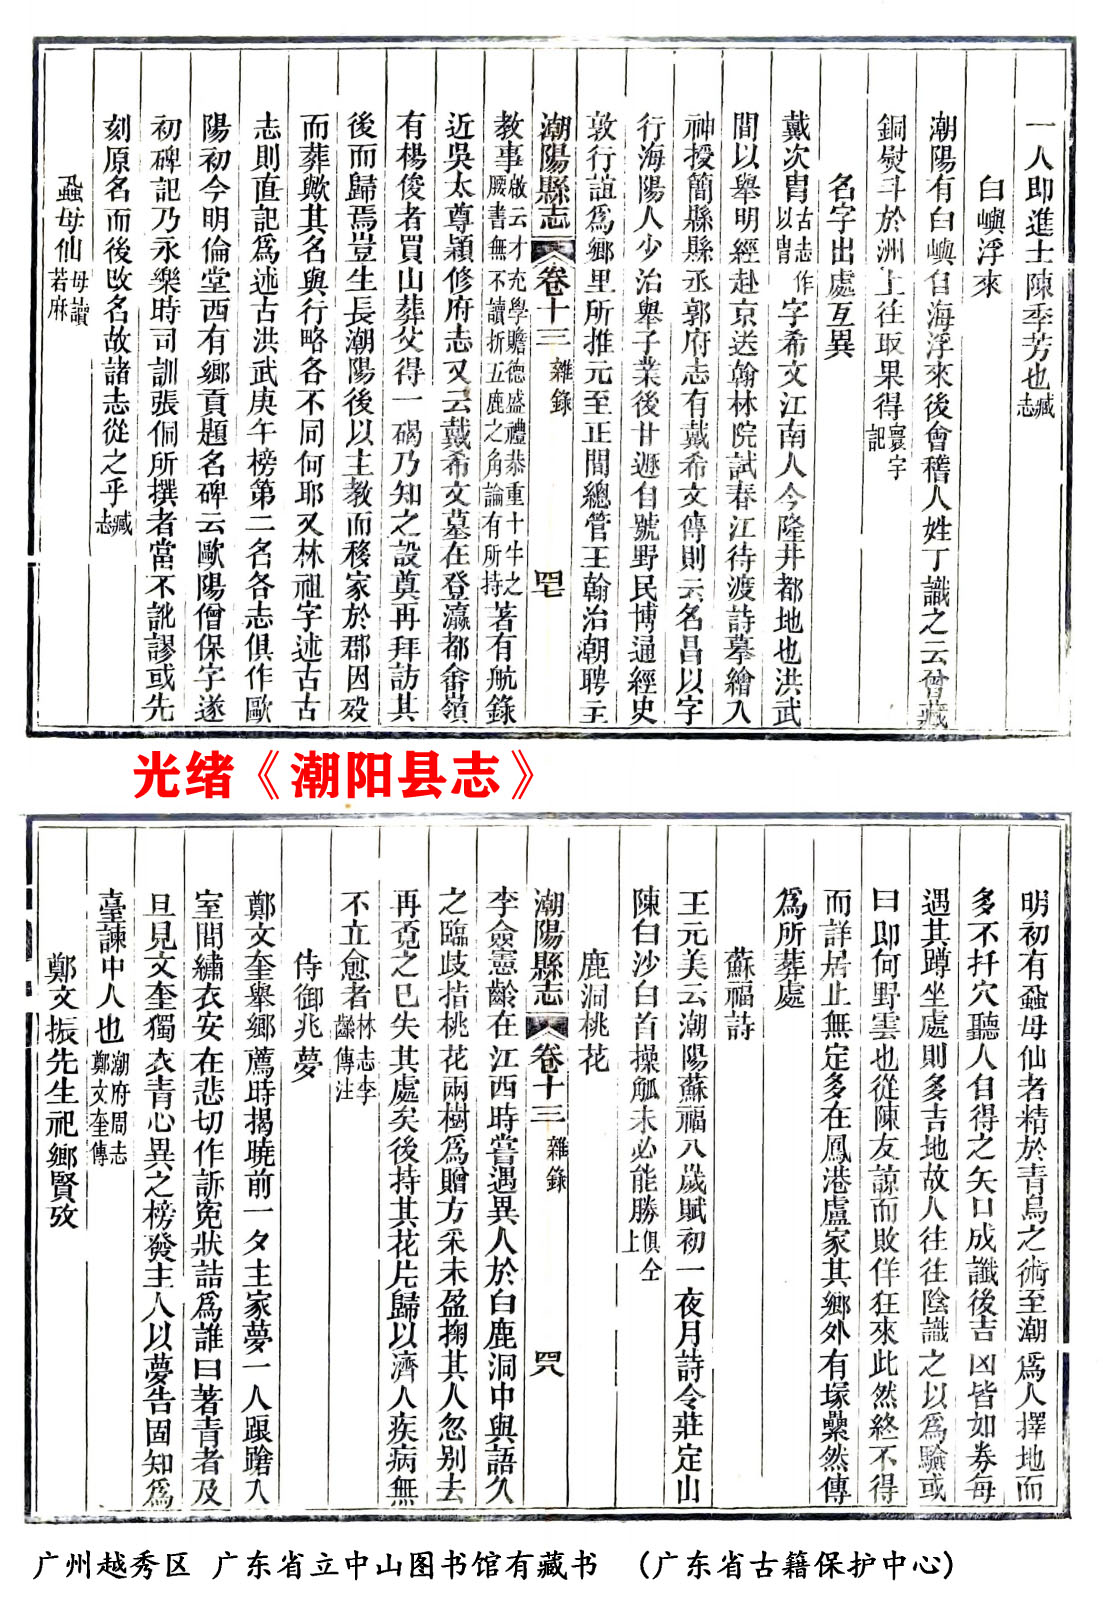 一人即進士陳李芳也臧志
白嶼浮來
潮陽有白嶼自海浮來後會稽人姓丁識之云曾藏
銅熨斗於洲上往取果得寰宇記
名字出處互異
戴次胄古志作以胄字希文江南人今隆井都地也洪武
間以舉明經赴京送翰林院試春江待渡詩摹繪入
神授簡縣縣丞郭府志有戴希文傳則云名昌以字
行海陽人少治舉子業後甘遯自號野民博通經史
敦行誼為鄉里所推元至正間總管王翰治潮聘主
潮陽縣志 卷十三 雜錄 四七
教事啟云才充學贍德盛禮恭重十牛之腰書無不讀折五鹿之角論有所持著有航錄
近吳太尊穎修府志又云戴希文墓在登瀛都畬嶺
有楊俊者買山葬父得一碣乃知之設奠再拜訪其
後而歸焉豈生長潮陽後以主教而移家於郡因歿
而葬歟其名與行略各不同何耶又林祖字述古古
志則直記為述古洪武庚午榜第二名各志俱作歐
陽初今明倫堂西有鄉貢題名碑云歐陽僧保字遂
初碑記乃永樂時司訓張侗所撰者當不訛謬或先
刻原名而後改名故諸志從之乎臧志
蝨母仙母讀若麻
光绪《潮阳县志》
明初有蝨母仙者精於青烏之術至潮為人擇地而
多不扞穴聽人自得之矢口成讖後吉凶皆如券每
遇其蹲坐處則多吉地故人往往陰識之以為驗或
曰即何野雲也從陳友諒而敗佯狂來此然終不得
而詳居止無定多在鳳港盧家其鄉外有塚纍然傳
為所葬處
蘇福詩
王元美云潮陽蘇福八歲賦初一夜月詩令莊定山
陳白沙白首操觚未必能勝俱仝上
鹿洞桃花
李僉憲齡在江西時嘗遇異人於白鹿洞中與語久
之臨歧指桃花兩樹為贈方采未盈掬其人忽別去
再覓之已失其處矣後持其花片歸以濟人疾病無
不立愈者林志李齡傳注
潮陽縣志 卷十三 雜錄 四八
侍御兆夢
鄭文奎舉鄉薦時揭曉前一夕主家夢一人踉蹌入
室間繡衣安在悲切作訴冤狀詰為誰曰著青者及
旦見文奎獨衣青心異之榜發主人以夢告固知為
臺諫中人也潮府周志鄭文奎傳
鄭文振先生祀鄉賢攷
广州越秀区 广东省立中山图书馆有藏书 (广东省古籍保护中心)